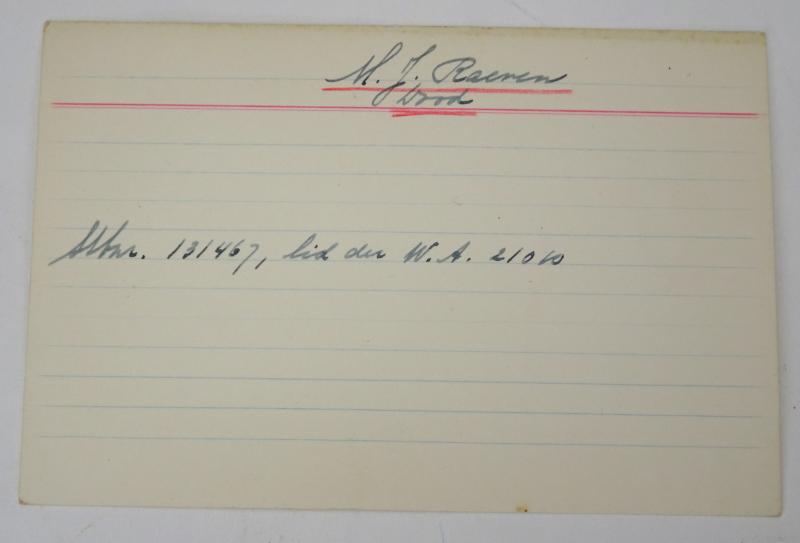 M. J. Raeven
dood
Stbnr. 131467, lid der W.A. 21010